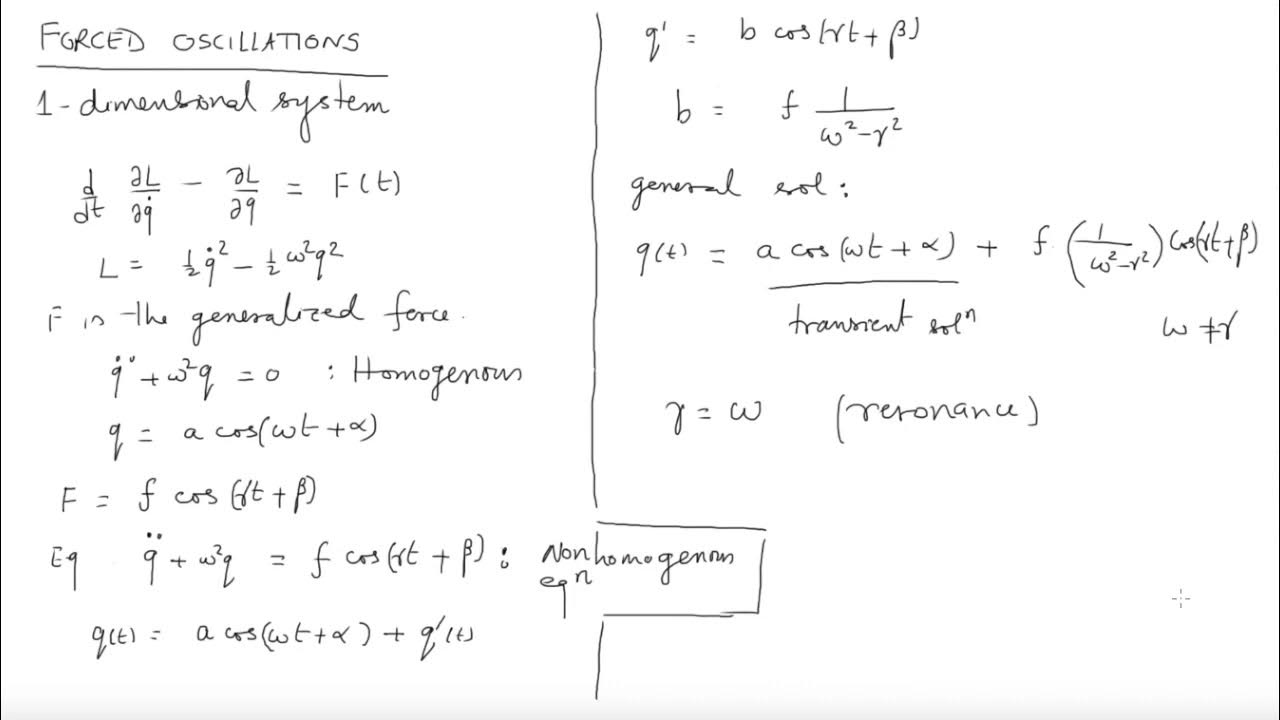 FORCED OSCILLATIONS
1-dimensional system
d/dt ∂L/∂q̇ − ∂L/∂q = F(t)
L = ½ q̇² − ½ ω²q²
F is the generalized force.
q̈ + ω²q = 0 : Homogenous
q = a cos(ωt + α)
F = f cos(γt + β)
Eq q̈ + ω²q = f cos(γt + β) : Nonhomogenous
eqⁿ
q(t) = a cos(ωt + α) + q'(t)
q' = b cos(γt + β)
b = f 1/(ω² − γ²)
general sol :
q(t) = a cos(ωt + α) + f (1/(ω² − γ²)) cos(γt + β)
transient solⁿ ω ≠ γ
γ = ω (resonance)